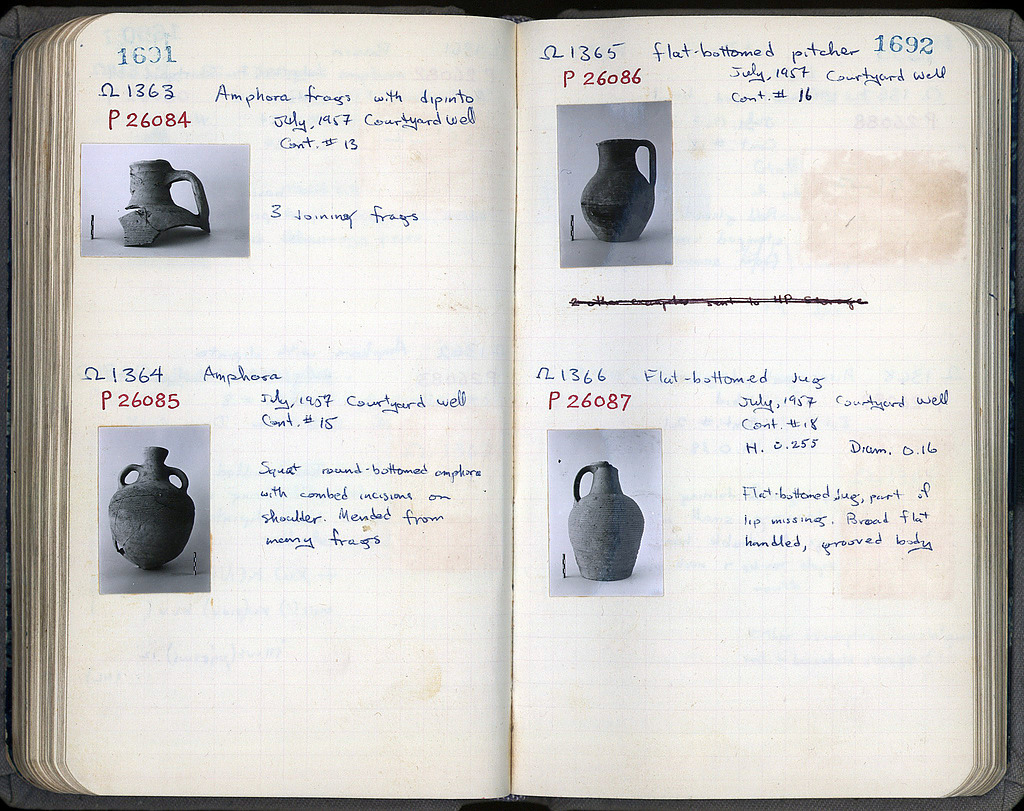 1691
Ω 1363 Amphora frags with dipinto
P 26084 July, 1957 Courtyard well
Cont. # 13
3 joining frags
Ω 1364 Amphora
P 26085 July, 1957 Courtyard well
Cont. # 15
Squat round-bottomed amphora
with combed incisions on
shoulder. Mended from
many frags
1692
Ω 1365 flat-bottomed pitcher
P 26086 July, 1957 Courtyard well
Cont. # 16
2 other examples sent to HP Storage
Ω 1366 Flat-bottomed jug
P 26087 July, 1957 Courtyard well
Cont. # 18
H. 0.255 Diam. 0.16
Flat-bottomed jug, part of
lip missing. Broad flat
handled, grooved body